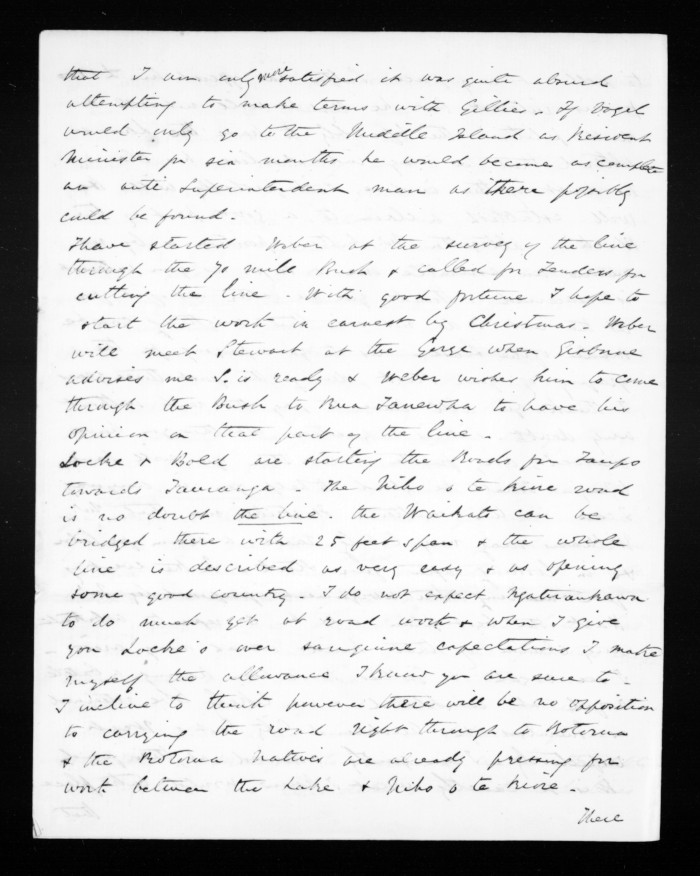 that I am only more satisfied it was quite absurd
attempting to make terms with Gillies. If Vogel
would only go to the Middle Island as Resident
Minister for six months he would become as complete
an anti Superintendent man as there possibly
could be found.
I have started Weber at the survey of the line
through the 70 mile Bush & called for Tenders for
cutting the line. With good fortune I hope to
start the work in earnest by Christmas. Weber
will meet Stewart at the Gorge when Gisborne
advises me S. is ready & Weber wishes him to come
through the Bush to Rua Tanewha to have his
opinion on that part of the line.
Locke & Bold are starting the Roads for Taupo
towards Tauranga. The Niho o te Kiore road
is no doubt the line. the Waikato can be
bridged there with 25 feet span & the whole
line is described as very easy & as opening
some good country. I do not expect Ngatiraukawa
to do much yet at road work & when I give
you Locke's over sanguine expectations I make
myself the allowance I know you are sure to.
I incline to think however there will be no opposition
to carrying the road right through to Rotorua
& the Rotorua natives are already pressing for
work between the Lake & Niho o te Kiore.
There